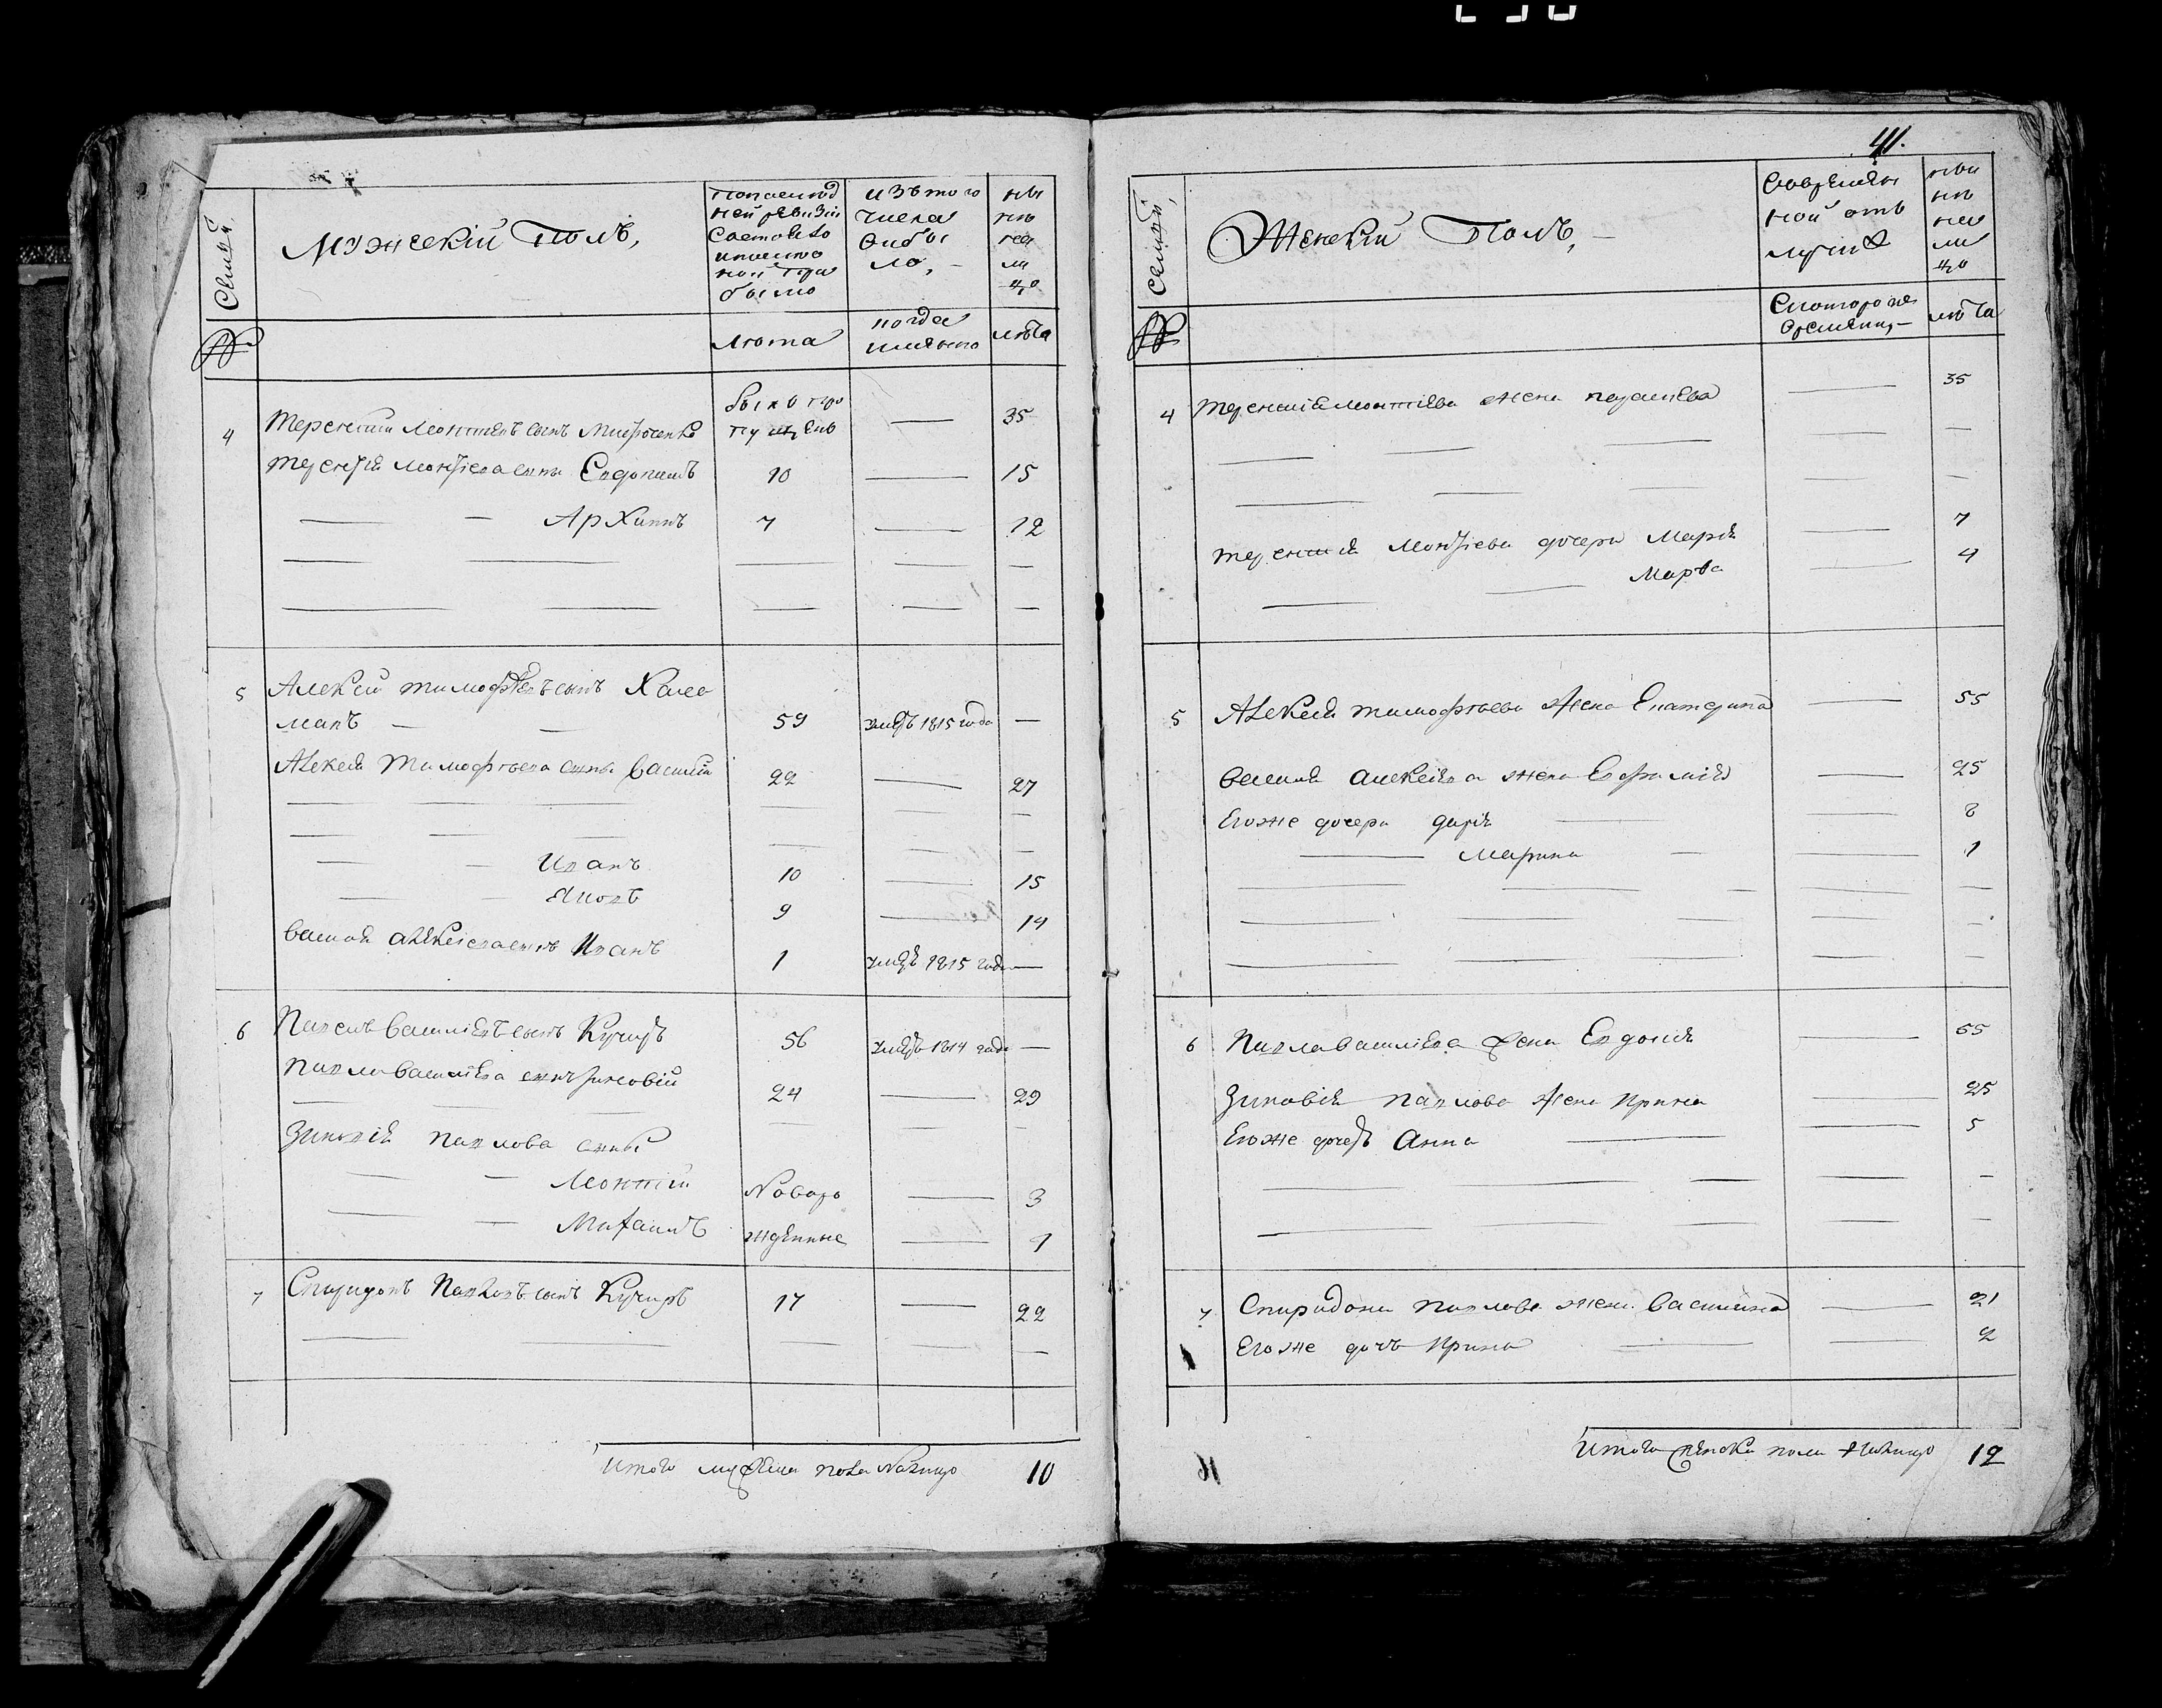 41.
Семьи
Мужескій Полъ,
По последней ревизіи состояло и после оной прибыло
Изъ того числа выбыло,
ныне на лицо
№
лета
когда именно
лета
4 Терентий Леонтиевъ сынъ
было пропущено — 35
Терентия Леонтиева сынъ Евдокимъ 10 — 15
Архипъ 7 — 12
5 Алексей Тимофеевъ сынъ
59 умеръ 1815 года —
Алексея Тимофеева сынъ Василий 22 — 27
Иванъ 10 — 15
Яковъ 9 — 14
Василия Алексеева сынъ Иванъ 1 умеръ 1815 года —
6 Павелъ Василиевъ сынъ Кучиръ 56 умеръ 1814 года —
Павла Василиева сынъ Зиновий 24 — 29
Зиновия Павлова сыны
Леонтий Новоро — 3
Михаилъ жденные — 1
7 Спиридонъ Павловъ сынъ Кучиръ 17 — 22
Итого мужеска пола на лицо 10
Семьи
Женскій Полъ,
Во временной отлучке
ныне на лицо
№
С которого времяни,
лета
4 Терентия Леонтиева жена — 35
Терентия Леонтиева дочери Мария — 7
Марфа — 4
5 Алексея Тимофеева жена Екатерина — 55
Василия Алексеева жена Евфимия — 25
Егоже дочери Дария —
Марина — 1
6 Павла Василиева жена Евдокия — 55
Зиновия Павлова жена Ирина — 25
Егоже дочерь Анна — 5
7 Спиридона Павлова жена Василина — 21
Егоже дочь Ирина — 2
Итого женска пола на лицо 12